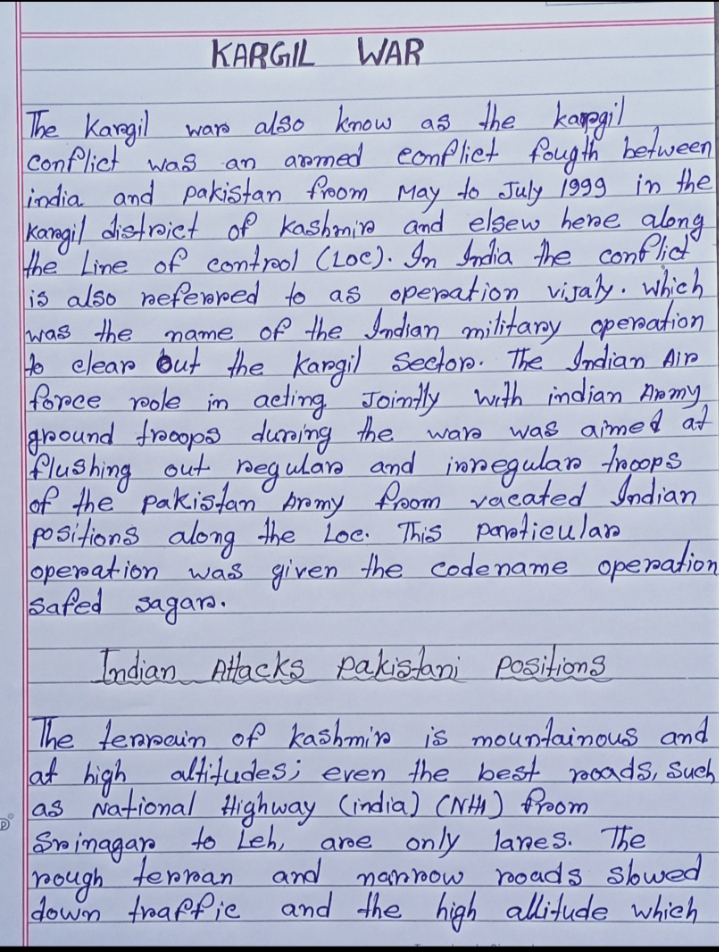 KARGIL WAR
The Kargil war also know as the kargil
conflict was an armed conflict fougth between
india and pakistan from May to July 1999 in the
Kargil district of kashmir and elsew here along
the Line of control (LOC). In India the conflict
is also referred to as operation vijaly. which
was the name of the Indian military operation
to clear out the Kargil Sector. The Indian Air
force role in acting Jointly with indian Army
ground troops during the war was aimed at
flushing out regular and irregular troops
of the pakistan Army from vacated Indian
positions along the Loc. This particular
operation was given the codename operation
safed sagar.
Indian Attacks pakistani positions
The terrain of kashmir is mountainous and
at high altitudes; even the best roads, such
as National Highway (india) (NH1) from
Srinagar to Leh, are only lanes. The
rough terran and narrow roads slowed
down traffic and the high allitude which